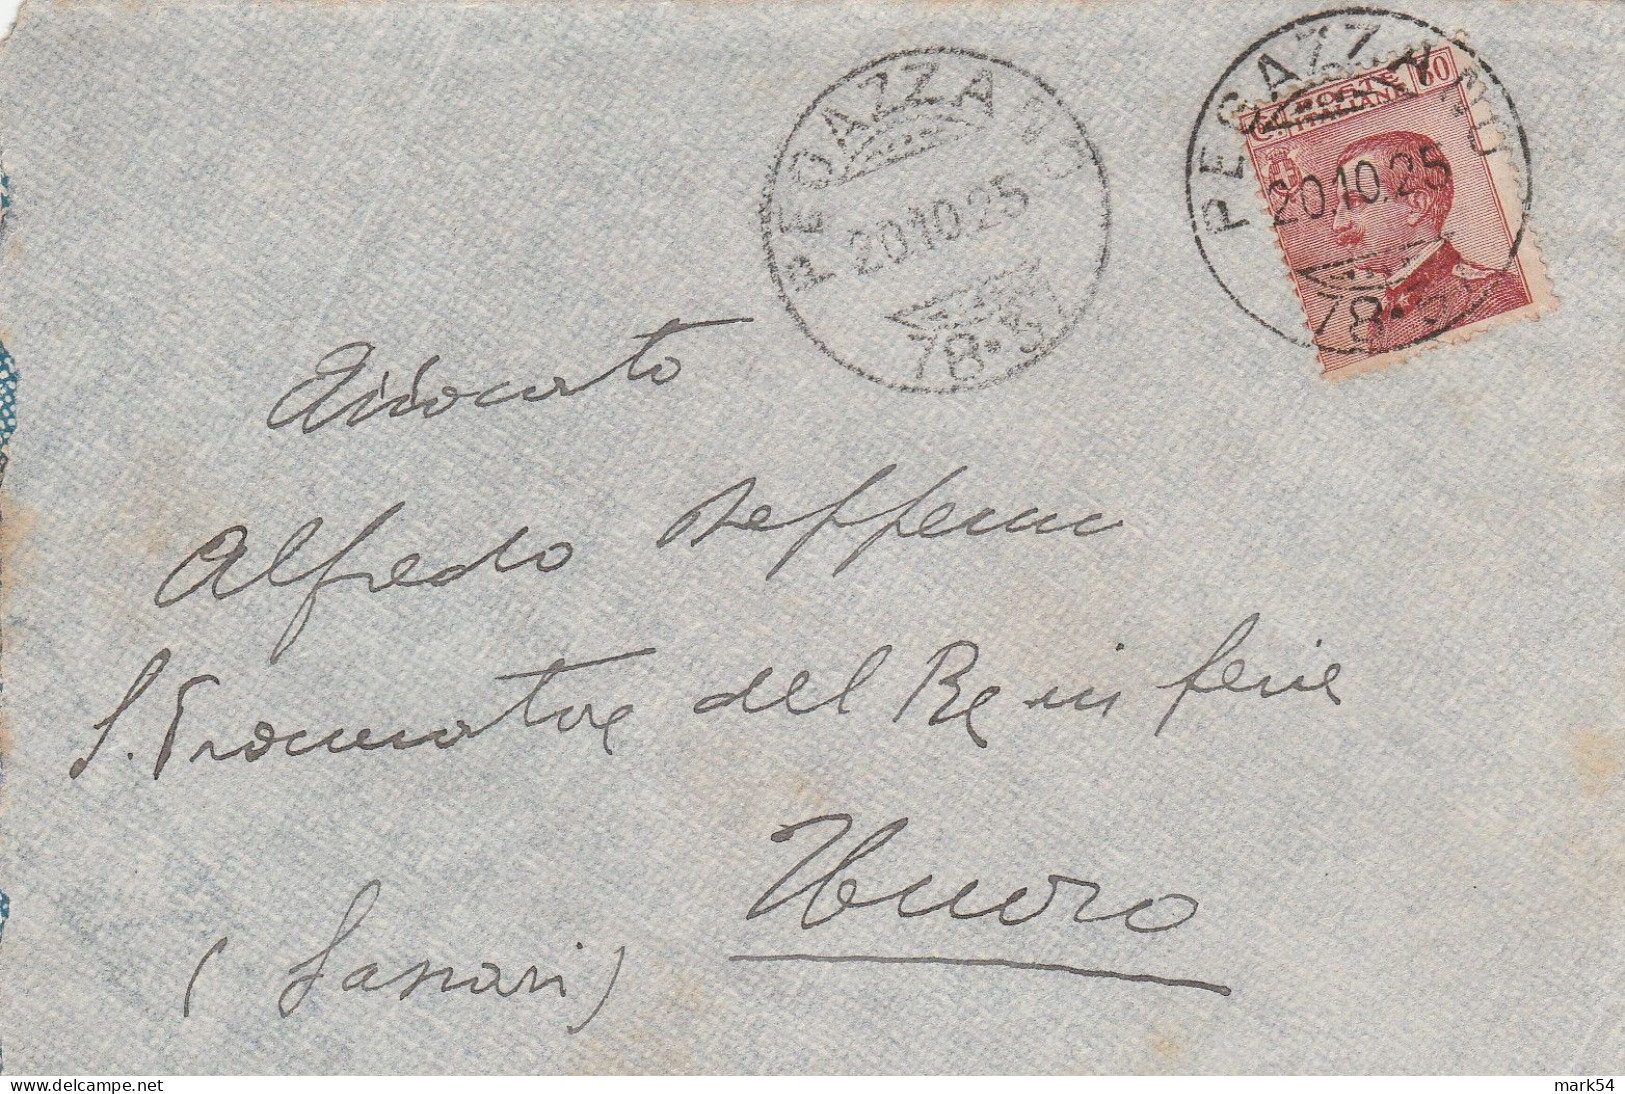 PEGAZZANO
20.10.25
78·51
PEGAZZANO
20.10.25
78·5
C. POSTE 60
ITALIANE
Avvocato
Alfredo
S. Procuratore del Re in ferie
Nuoro
(Sassari)
www.delcampe.net
mark54